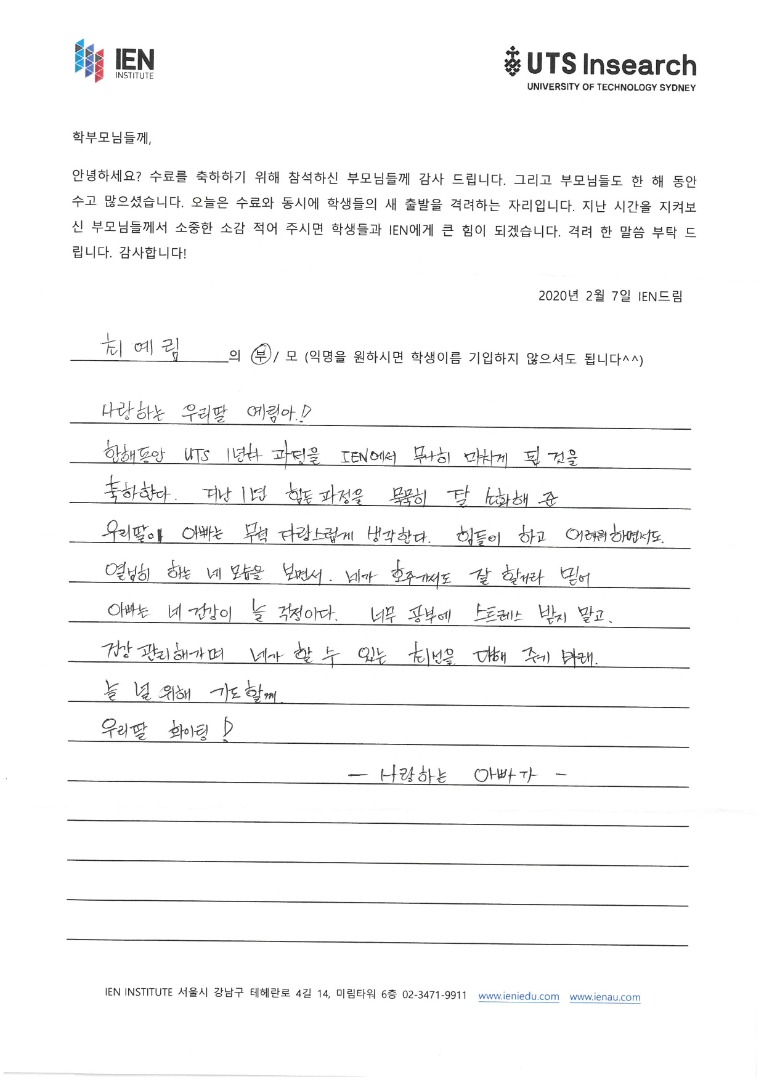 IEN
INSTITUTE
UTS Insearch
UNIVERSITY OF TECHNOLOGY SYDNEY
학부모님들께,
안녕하세요? 수료를 축하하기 위해 참석하신 부모님들께 감사 드립니다. 그리고 부모님들도 한 해 동안
수고 많으셨습니다. 오늘은 수료와 동시에 학생들의 새 출발을 격려하는 자리입니다. 지난 시간을 지켜보
신 부모님들께서 소중한 소감 적어 주시면 학생들과 IEN에게 큰 힘이 되겠습니다. 격려 한 말씀 부탁 드
립니다. 감사합니다!
2020년 2월 7일 IEN드림
최예림 의 부/ 모 (익명을 원하시면 학생이름 기입하지 않으셔도 됩니다^^)
사랑하는 우리딸 예림아!
한해동안 UTS 1년차 과정을 IEN에서 무사히 마치게 된 것을
축하한다. 지난 1년 힘든 과정을 묵묵히 잘 소화해 준
우리딸이 아빠는 무척 자랑스럽게 생각한다. 힘들어 하고 어려워하면서도.
열심히 하는 네 모습을 보면서. 네가 호주가서도 잘 할거라 믿어
아빠는 네 건강이 늘 걱정이다. 너무 공부에 스트레스 받지 말고.
건강 관리해가며 네가 할 수 있는 최선을 다해 주기 바래.
늘 널 위해 기도할께
우리딸 화이팅!
- 사랑하는 아빠가 -
IEN INSTITUTE 서울시 강남구 테헤란로 4길 14, 미림타워 6층 02-3471-9911 www.ieniedu.com www.ienau.com